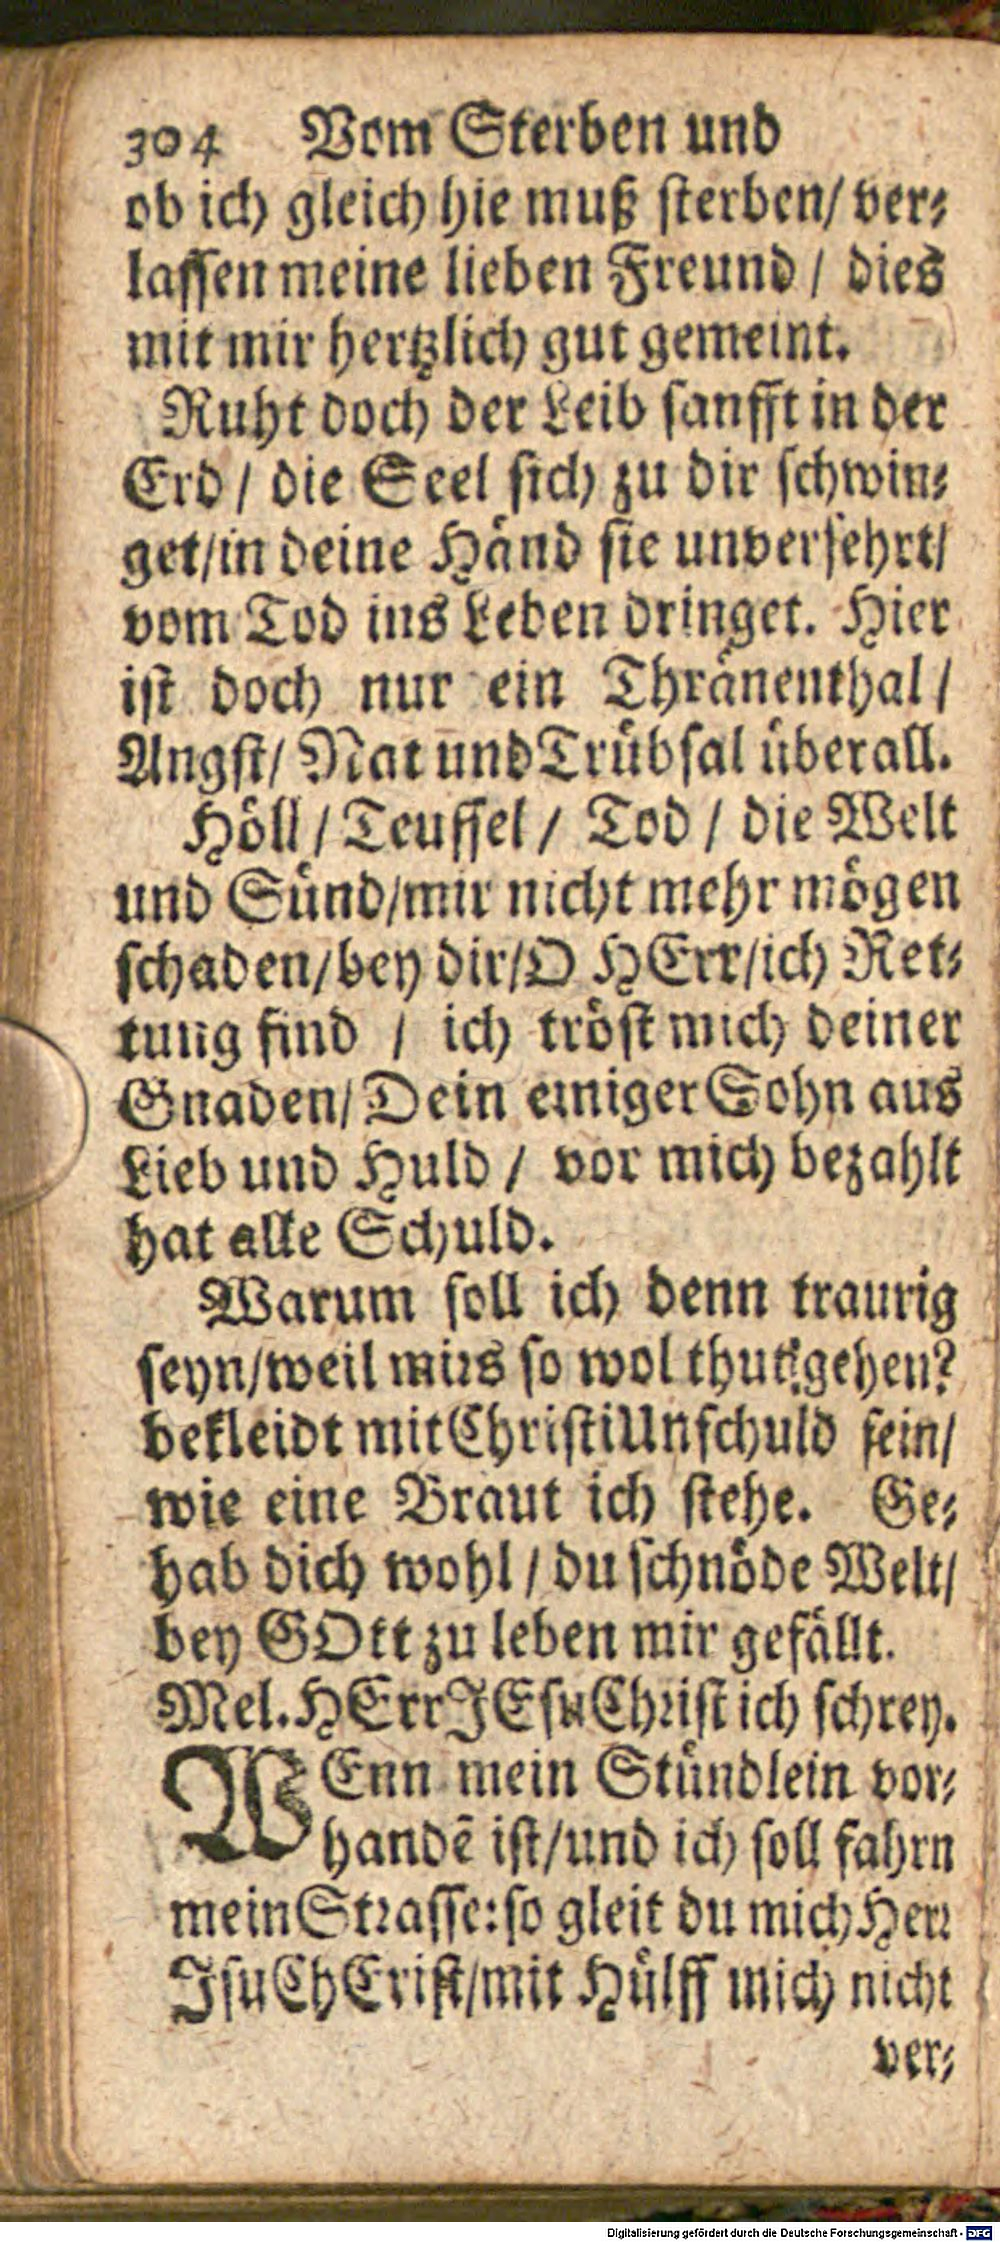 304 Vom Sterben und
ob ich gleich hie muß sterben/ ver⸗
lassen meine lieben Freund / dies
mit mir hertzlich gut gemeint.
Ruht doch der Leib sanfft in der
Erd / die Seel sich zu dir schwin⸗
get/in deine Händ sie unversehrt/
vom Tod ins Leben dringet. Hier
ist doch nur ein Thränenthal /
Angst/ Nat und Trübsal überall.
Höll / Teuffel / Tod / die Welt
und Sünd/mir nicht mehr mögen
schaden/bey dir/O HErr/ich Ret⸗
tung find / ich tröst mich deiner
Gnaden/ Dein einiger Sohn aus
Lieb und Huld / vor mich bezahlt
hat alle Schuld.
Warum soll ich denn traurig
seyn/weil mirs so wol thut gehen?
bekleidt mit Christi Unschuld fein/
wie eine Braut ich stehe. Ge⸗
hab dich wohl / du schnöde Welt/
bey GOtt zu leben mir gefällt.
Mel. HErr JEsu Christ ich schrey.
WEnn mein Stündlein vor⸗
handē ist/und ich soll fahrn
mein Strasse: so gleit du mich Herr
Jsu ChErist/mit Hülff mich nicht
ver⸗
Digitalisierung gefördert durch die Deutsche Forschungsgemeinschaft - DFG